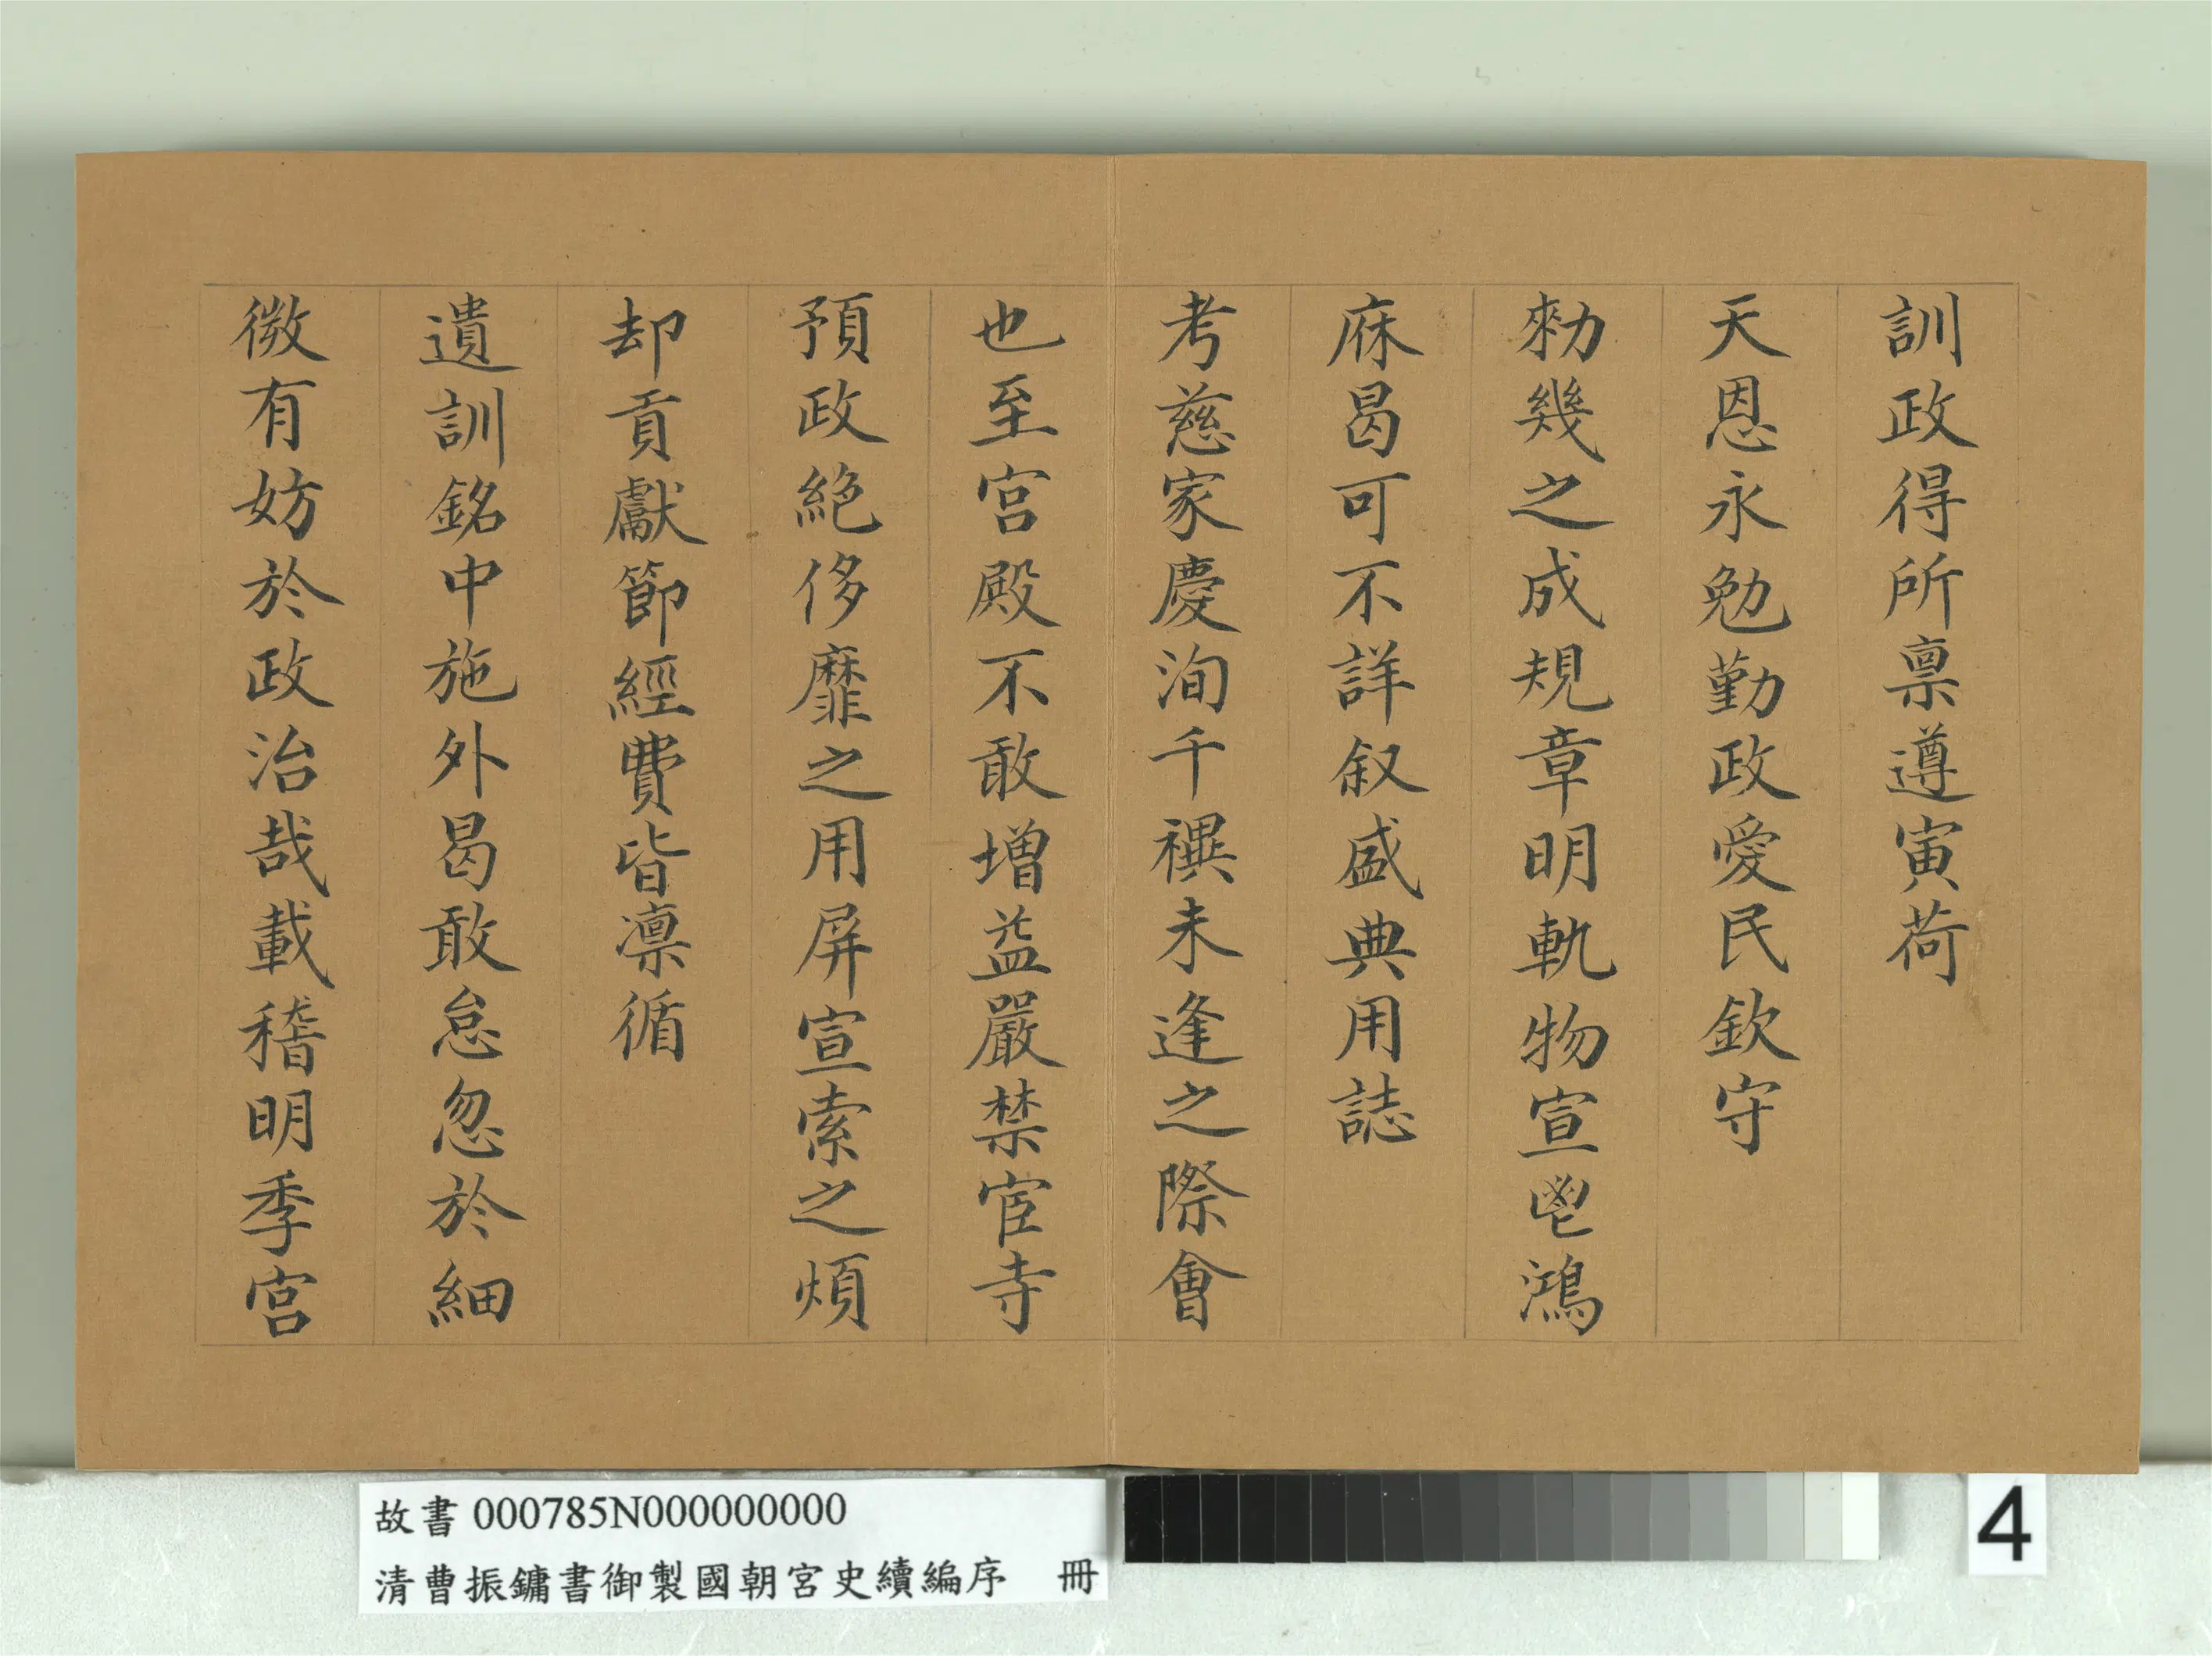 訓政得所禀遵寅荷
天恩永勉勤政愛民欽守
勑幾之成規章明軌物宣鬯鴻
庥曷可不詳叙盛典用誌
考慈家慶洵千禩未逢之際會
也至宫殿不敢增益嚴禁宦寺
預政絶侈靡之用屏宣索之煩
却貢獻節經費皆凛循
遺訓銘中施外曷敢怠忽於細
微有妨於政治哉載稽明季宫
故書 000785N000000000
清曹振鏞書御製國朝宮史續編序 冊
4